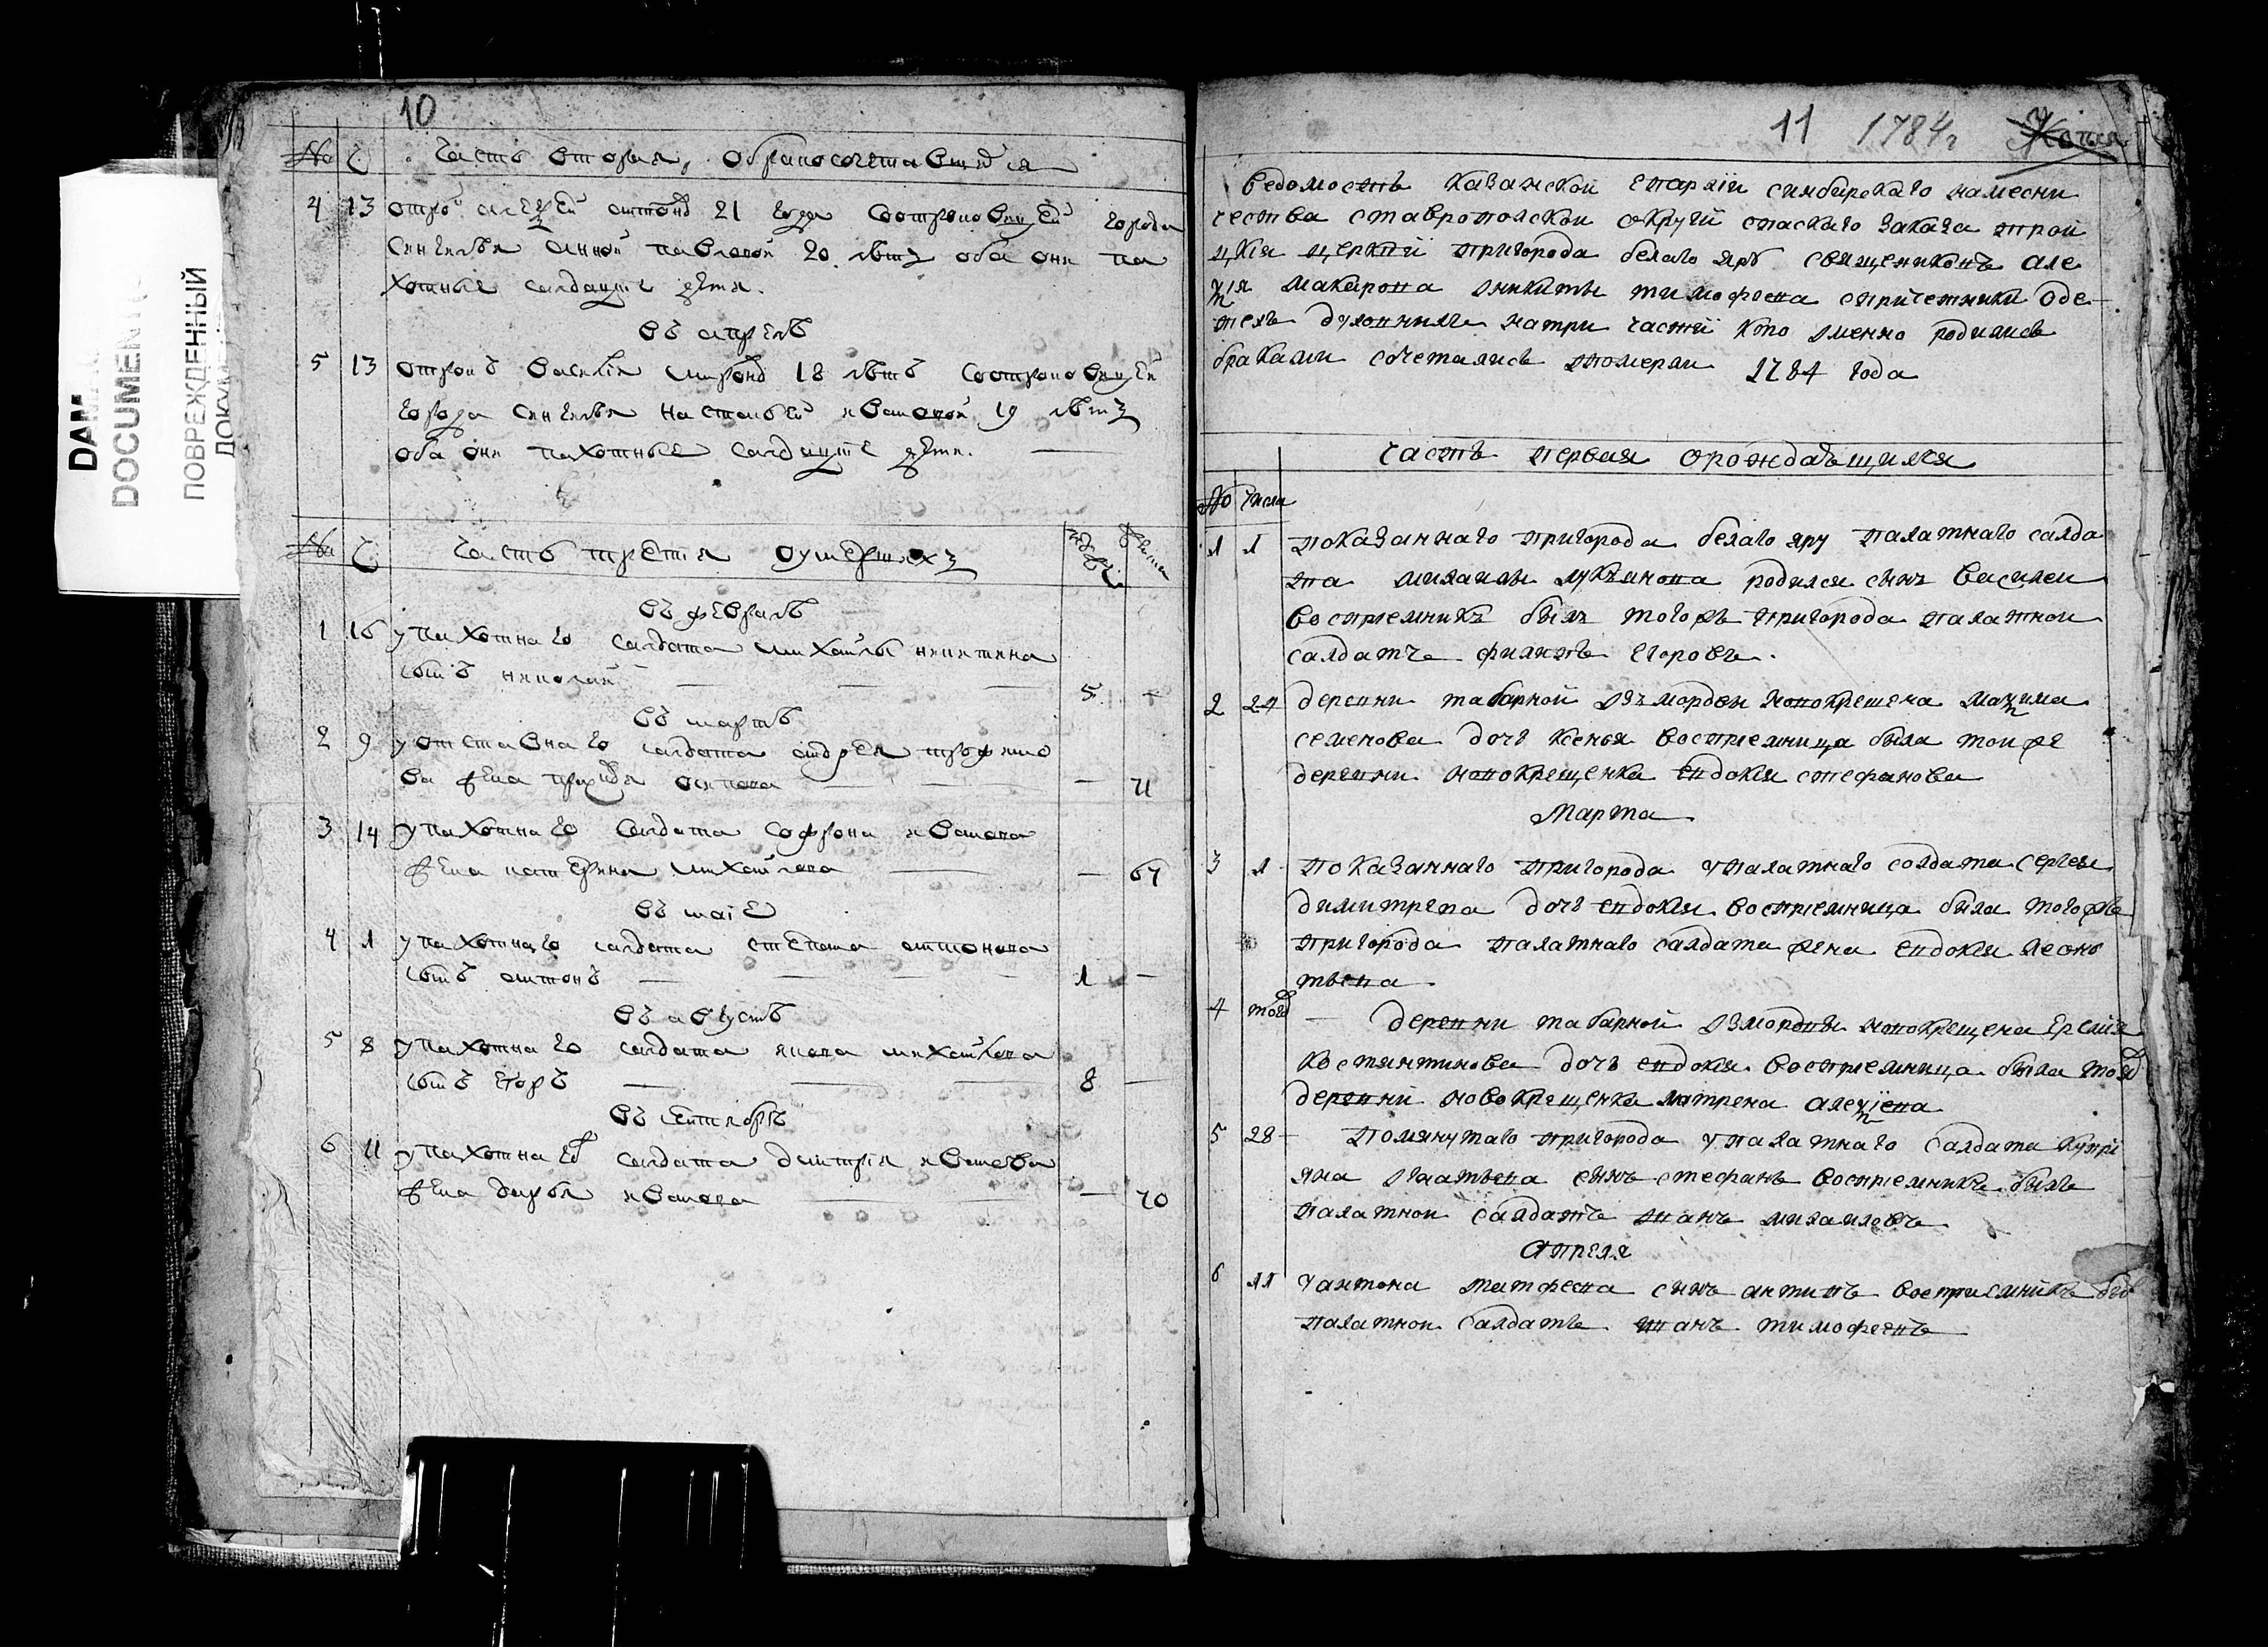 10
№ Ч. Часть вторая, о бракосочетавшихся
4 13 отрокъ алеѯей антоновъ 21 года соотроковицей города
сингилѣя анной павловой 20 лѣтъ оба они па
хотные салдацкие дѣти.
въ апрелѣ
5 13 отрокъ василiй мироновъ 18 лѣтъ соотроковицей
города сингилѣя настасьей ивановой 19 лѣтъ
оба они пахотные салдацкие дѣти.
№ Ч. Часть третья о умершихъ
въ февралѣ
1 16 у пахотнаго салдата михайлы никитина
сынъ николай — — — 5 —
въ мартѣ
2 9 у отставнаго салдата андрея трофимо
ва жена осипова — — — 71
3 14 у пахотнаго салдата софрона иванова
жена катерина михайлова — — 67
въ маiе
4 1 у пахотнаго салдата степана антонова
сынъ антонъ — — — 1 —
въ августѣ
5 8 у пахотнаго салдата якова михайлова
сынъ егоръ — — — 8 —
въ сентябрѣ
6 11 у пахотнаго салдата дмитрiя иванова
жена дарья иванова — — 70
DOCUMENT
ПОВРЕЖДЕННЫЙ
11 1784 г
Ведомость Казанской епархiи симбирскаго намесни
чества ставропольской округи спаскаго заказа трои
цкiя церкви пригорода белаго яру священиковъ але
ѯiя макарова иникиты тимофеева спричетники оде
тель духовныхъ натри части кто имено родились
браками сочетались ипомерли 1784 года
Часть первая орождающихся
№ Числа
1 1 показаннаго пригорода белаго яру палатнаго салда
та михаилы лукьянова родился сынъ василеи
восприемникъ былъ тогожъ пригорода палатнои
салдатъ филипъ егоровъ.
2 24 деревни табарной изъ мордвы новокрещена маѯима
семенова дочь ксенья восприемница была тои же
деревни новокрещенка евдокiя стефанова
Марта
3 1 показаннаго пригорода упалатнаго солдата сергея
димитрева дочь евдокiя восприемница была тогожъ
пригорода палатнаго салдата жена евдокiя леонь
тьева
4 того — деревни табарной измордвы новокрещена еремiя
костянтинова дочь евдокiя восприемница была тояж
деревни новокрещенка матрена алеѯiева
5 28 помянутаго пригорода упалатнаго салдата купрi
яна игнатьева сынъ стефанъ восприемникъ былъ
палатнои салдатъ иванъ михаиловъ
Апреля
6 11 уантона матфеева сынъ антипъ восприемникъ был
палатнои салдатъ иванъ тимофеевъ